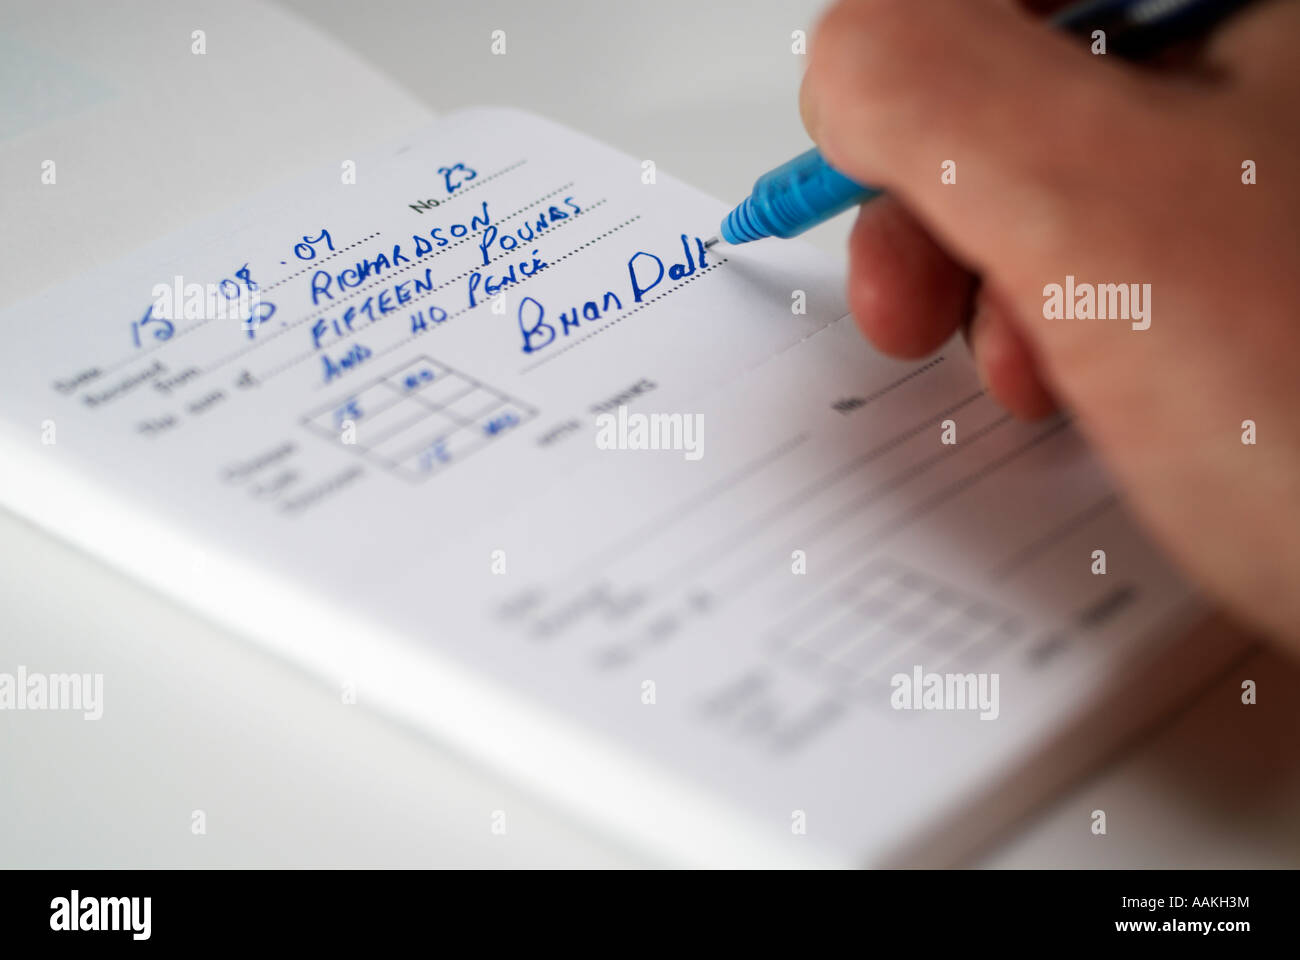 No. 23
Date 15 .08 .07
Received from P. RICHARDSON
The sum of FIFTEEN POUNDS
AND 40 PENCE
Brian Dalt
15 40
15 40
WITH THANKS
No.
alamy
alamy
alamy
alamy
alamy
Image ID: AAKH3M
www.alamy.com